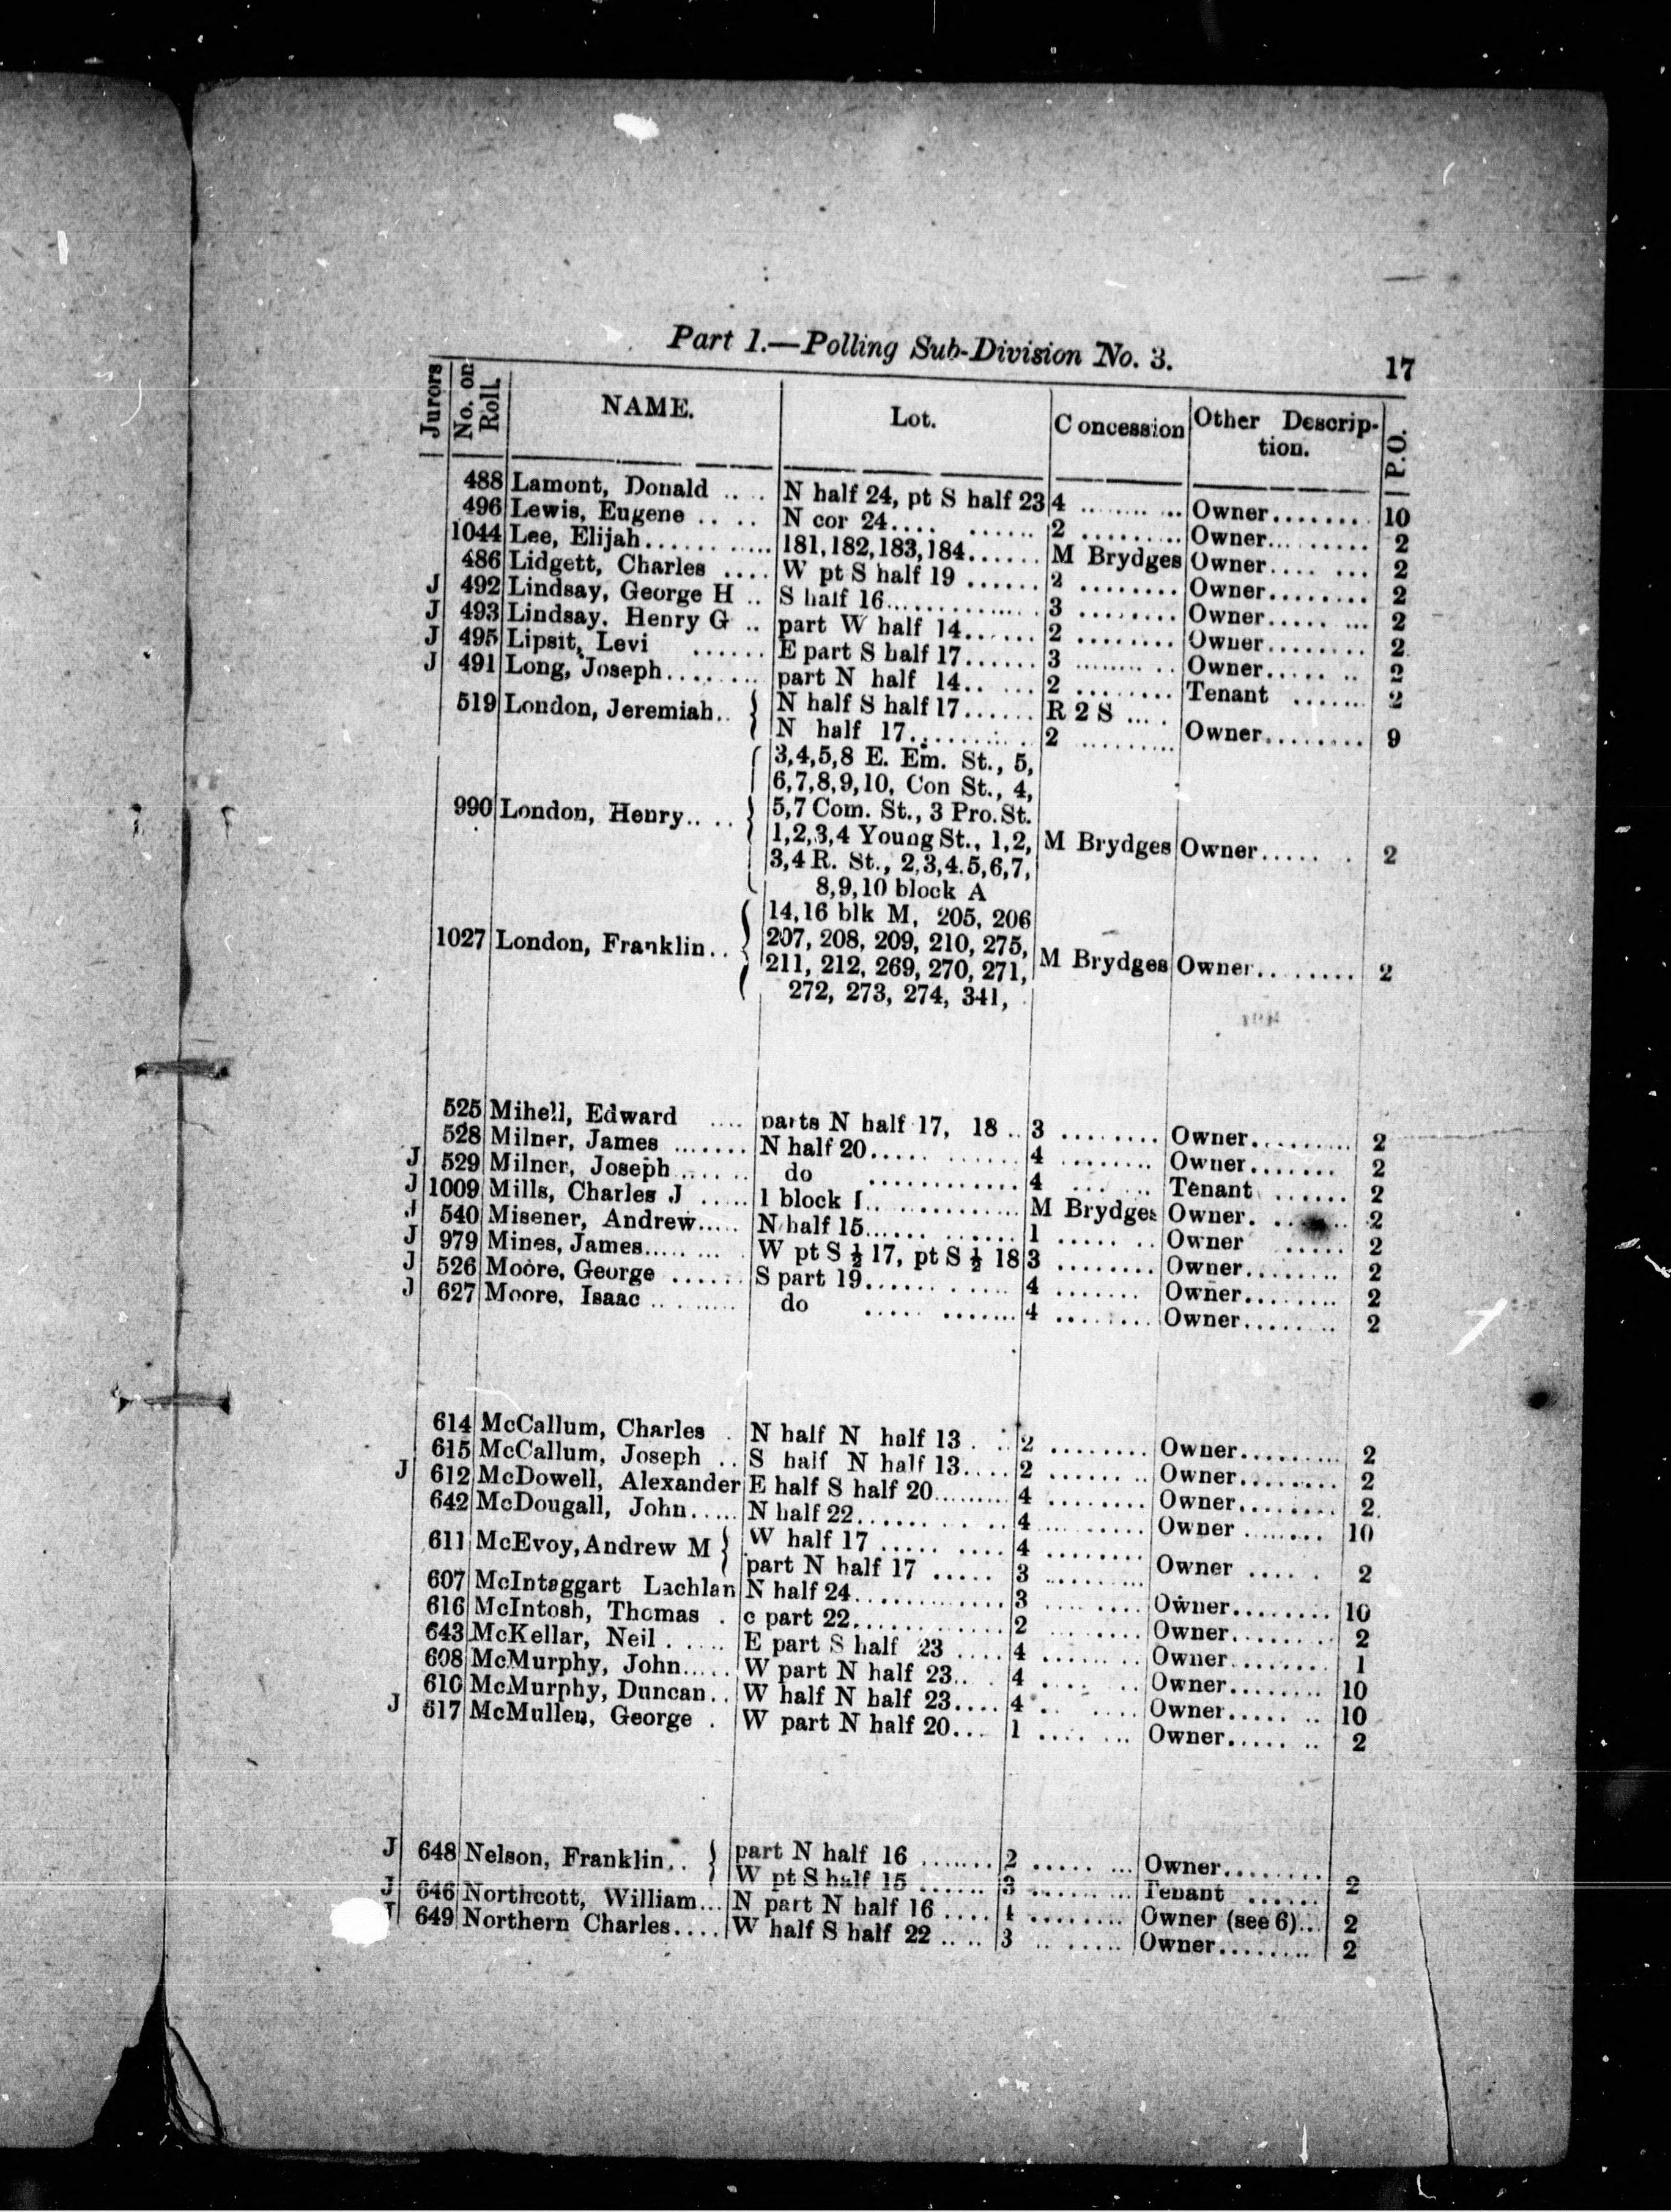 Part 1.—Polling Sub-Division No. 3. 17
Jurors No. on Roll. NAME. Lot. Concession Other Description. P.O.
488 Lamont, Donald .... N half 24, pt S half 23 4 .......... Owner....... 10
496 Lewis, Eugene .... N cor 24.... ...... 2 ......... Owner......... 2
1044 Lee, Elijah........... 181,182,183,184...... M Brydges Owner.... ... 2
486 Lidgett, Charles .... W pt S half 19 ...... 2 ........ Owner........ 2
J 492 Lindsay, George H .. S half 16............. 3 ........ Owner..... ... 2
J 493 Lindsay, Henry G .. part W half 14...... 2 ........ Owner........ 2
J 495 Lipsit, Levi ...... E part S half 17...... 3 ........ .. Owner..... .. 2
J 491 Long, Joseph........ part N half 14.. ... 2 ........ Tenant ...... 2
519 London, Jeremiah.. { N half S half 17...... R 2 S ....
N half 17........... 2 ......... Owner........ 9
3,4,5,8 E. Em. St., 5,
6,7,8,9,10, Con St., 4,
990 London, Henry.. .. { 5,7 Com. St., 3 Pro. St.
1,2,3,4 Young St., 1,2, M Brydges Owner..... . 2
3,4 R. St., 2,3,4,5,6,7,
8,9,10 block A
14,16 blk M, 205, 206
1027 London, Franklin.. { 207, 208, 209, 210, 275,
211, 212, 269, 270, 271, M Brydges Owner........ 2
272, 273, 274, 341,
525 Mihell, Edward .... parts N half 17, 18 .. 3 ........ Owner.......... 2
528 Milner, James ....... N half 20..... ...... 4 ........ Owner....... 2
J 529 Milner, Joseph ...... do ............ 4 ... ... Tenant ...... 2
J 1009 Mills, Charles J ..... 1 block I.. ........... M Brydges Owner. ...... 2
J 540 Misener, Andrew..... N half 15...... ...... 1 ..... .. Owner ..... 2
J 979 Mines, James..... ... W pt S ½ 17, pt S ½ 18 3 ........ Owner........ 2
J 526 Moore, George ...... S part 19....... ..... 4 ....... Owner........ 2
J 627 Moore, Isaac .. ...... do ..... ....... 4 ........ Owner........ 2
614 McCallum, Charles . N half N half 13 . .. 2 ........ Owner......... 2
615 McCallum, Joseph .. S half N half 13.... 2 ...... .. Owner......... 2
J 612 McDowell, Alexander E half S half 20......... 4 ........ Owner........ 2
642 McDougall, John..... N half 22...... .. . .. 4 .......... Owner ........ 10
611 McEvoy, Andrew M { W half 17 ..... .... 4 ........
part N half 17 ..... 3 ......... Owner ..... 2
607 McIntaggart Lachlan N half 24............ 3 ........ Owner........ 10
616 McIntosh, Thomas . c part 22............ 2 ........ Owner........ 2
643 McKellar, Neil . .... E part S half 23 .... 4 ....... Owner........ 1
608 McMurphy, John..... W part N half 23.. . 4 .... .. Owner........ 10
610 McMurphy, Duncan.. W half N half 23.... 4 .. .... Owner...... .. 10
J 617 McMullen, George . W part N half 20... 1 .... ... Owner..... .. 2
J 648 Nelson, Franklin.. { part N half 16 ....... 2 ..... ... Owner........
W pt S half 15 ...... 3 .......... Tenant ...... 2
J 646 Northcott, William... N part N half 16 .... ........ Owner (see 6)... 2
J 649 Northern Charles.... W half S half 22 .. .. 3 .. ..... Owner........ 2